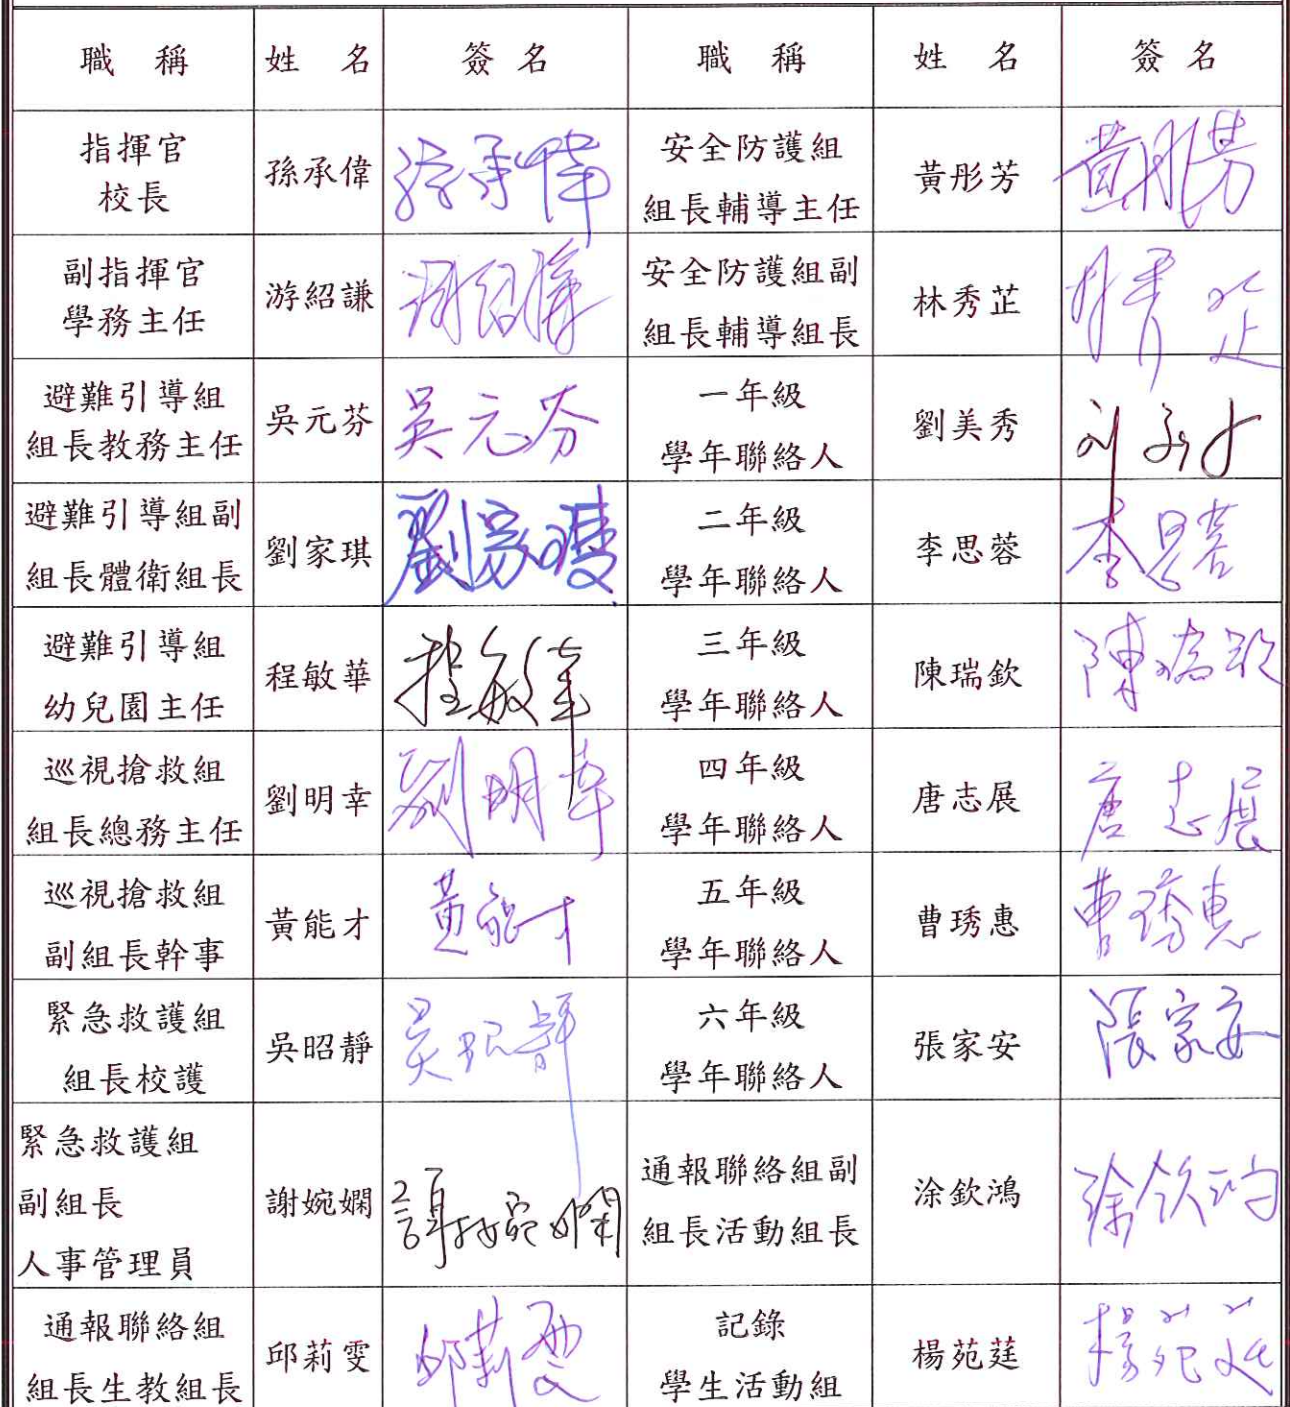 職稱 姓名 簽名 職稱 姓名 簽名
指揮官 校長 孫承偉 孫承偉 安全防護組 組長輔導主任 黃彤芳 黃彤芳
副指揮官 學務主任 游紹謙 游紹謙 安全防護組副 組長輔導組長 林秀芷 林秀芷
避難引導組 組長教務主任 吳元芬 吳元芬 一年級 學年聯絡人 劉美秀
避難引導組副 組長體衛組長 劉家琪 劉家琪 二年級 學年聯絡人 李思蓉 李思蓉
避難引導組 幼兒園主任 程敏華 程敏華 三年級 學年聯絡人 陳瑞欽 陳瑞欽
巡視搶救組 組長總務主任 劉明幸 劉明幸 四年級 學年聯絡人 唐志展 唐志展
巡視搶救組 副組長幹事 黃能才 黃能才 五年級 學年聯絡人 曹琇惠 曹琇惠
緊急救護組 組長校護 吳昭靜 吳昭靜 六年級 學年聯絡人 張家安 張家安
緊急救護組 副組長 人事管理員 謝婉嫻 謝婉嫻 通報聯絡組副 組長活動組長 涂欽鴻 涂欽鴻
通報聯絡組 組長生教組長 邱莉雯 邱莉雯 記錄 學生活動組 楊苑莛 楊苑莛